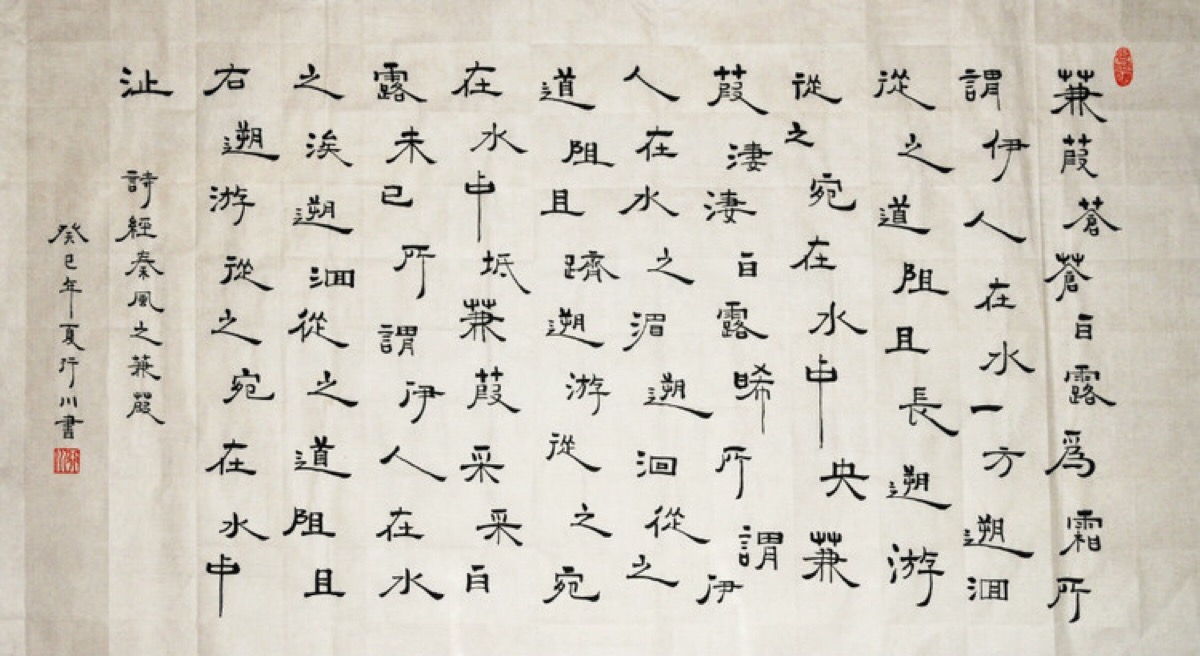 蒹葭蒼蒼白露爲霜所
謂伊人在水一方遡洄
從之道阻且長遡游
從之宛在水中央蒹
葭淒淒白露晞所謂伊
人在水之湄遡洄從之
道阻且躋遡游從之宛
在水中坻蒹葭采采白
露未已所謂伊人在水
之涘遡洄從之道阻且
右遡游從之宛在水中
沚 詩經秦風之蒹葭
癸巳年夏行川書